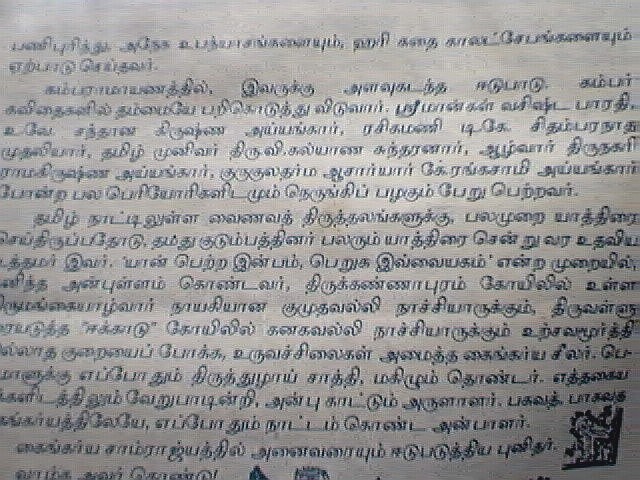 பணிபுரிந்து, அநேக உபந்யாசங்களையும், ஹரி கதை காலட்சேபங்களையும்
ஏற்பாடு செய்தவர்.
கம்பராமாயணத்தில், இவருக்கு அளவுகடந்த ஈடுபாடு. கம்பர்
கவிதைகளில் தம்மையே பறிகொடுத்து விடுவார். ஸ்ரீமான்கள் வசிஷ்ட பாரதி,
உ.வே. சந்தான கிருஷ்ண அய்யங்கார், ரசிகமணி டி.கே. சிதம்பரநாத
முதலியார், தமிழ் முனிவர் திரு.வி.கல்யாண சுந்தரனார், ஆழ்வார் திருநகரி
ராமகிருஷ்ண அய்யங்கார், குருகுலதர்ம ஆசார்யார் கே.ரங்கசாமி அய்யங்கார்
போன்ற பல பெரியோரிகளிடமும் நெருங்கிப் பழகும் பேறு பெற்றவர்.
தமிழ் நாட்டிலுள்ள வைணவத் திருத்தலங்களுக்கு, பலமுறை யாத்திரை
செய்திருப்பதோடு, தமது குடும்பத்தினர் பலரும் யாத்திரை சென்று வர உதவிய
உத்தமர் இவர். 'யான் பெற்ற இன்பம், பெறுக இவ்வையகம்' என்ற முறையில்,
னித்த அன்புள்ளம் கொண்டவர், திருக்கண்ணாபுரம் கோயிலில் உள்ள
திருமங்கையாழ்வார் நாயகியான குமுதவல்லி நாச்சியாருக்கும், திருவள்ளு
ரையடுத்த "ஈக்காடு" கோயிலில் கனகவல்லி நாச்சியாருக்கும் உற்சவமூர்த்தி
ில்லாத குறையைப் போக்க, உருவச்சிலைகள் அமைத்த கைங்கர்ய சீலர். பெ-
மாளுக்கு எப்போதும் திருத்துழாய் சாத்தி, மகிழும் தொண்டர். எத்தகைய
களிடத்திலும் வேறுபாடின்றி, அன்பு காட்டும் அருளாளர். பகவத், பாகவத
கைங்கர்யத்திலேயே, எப்போதும் நாட்டம் கொண்ட அன்பாளர்.
கைங்கர்ய சாம்ராஜ்யத்தில் அனைவரையும் ஈடுபடுத்திய புனிதர்.
வாழ்க அவர் தொண்டு!